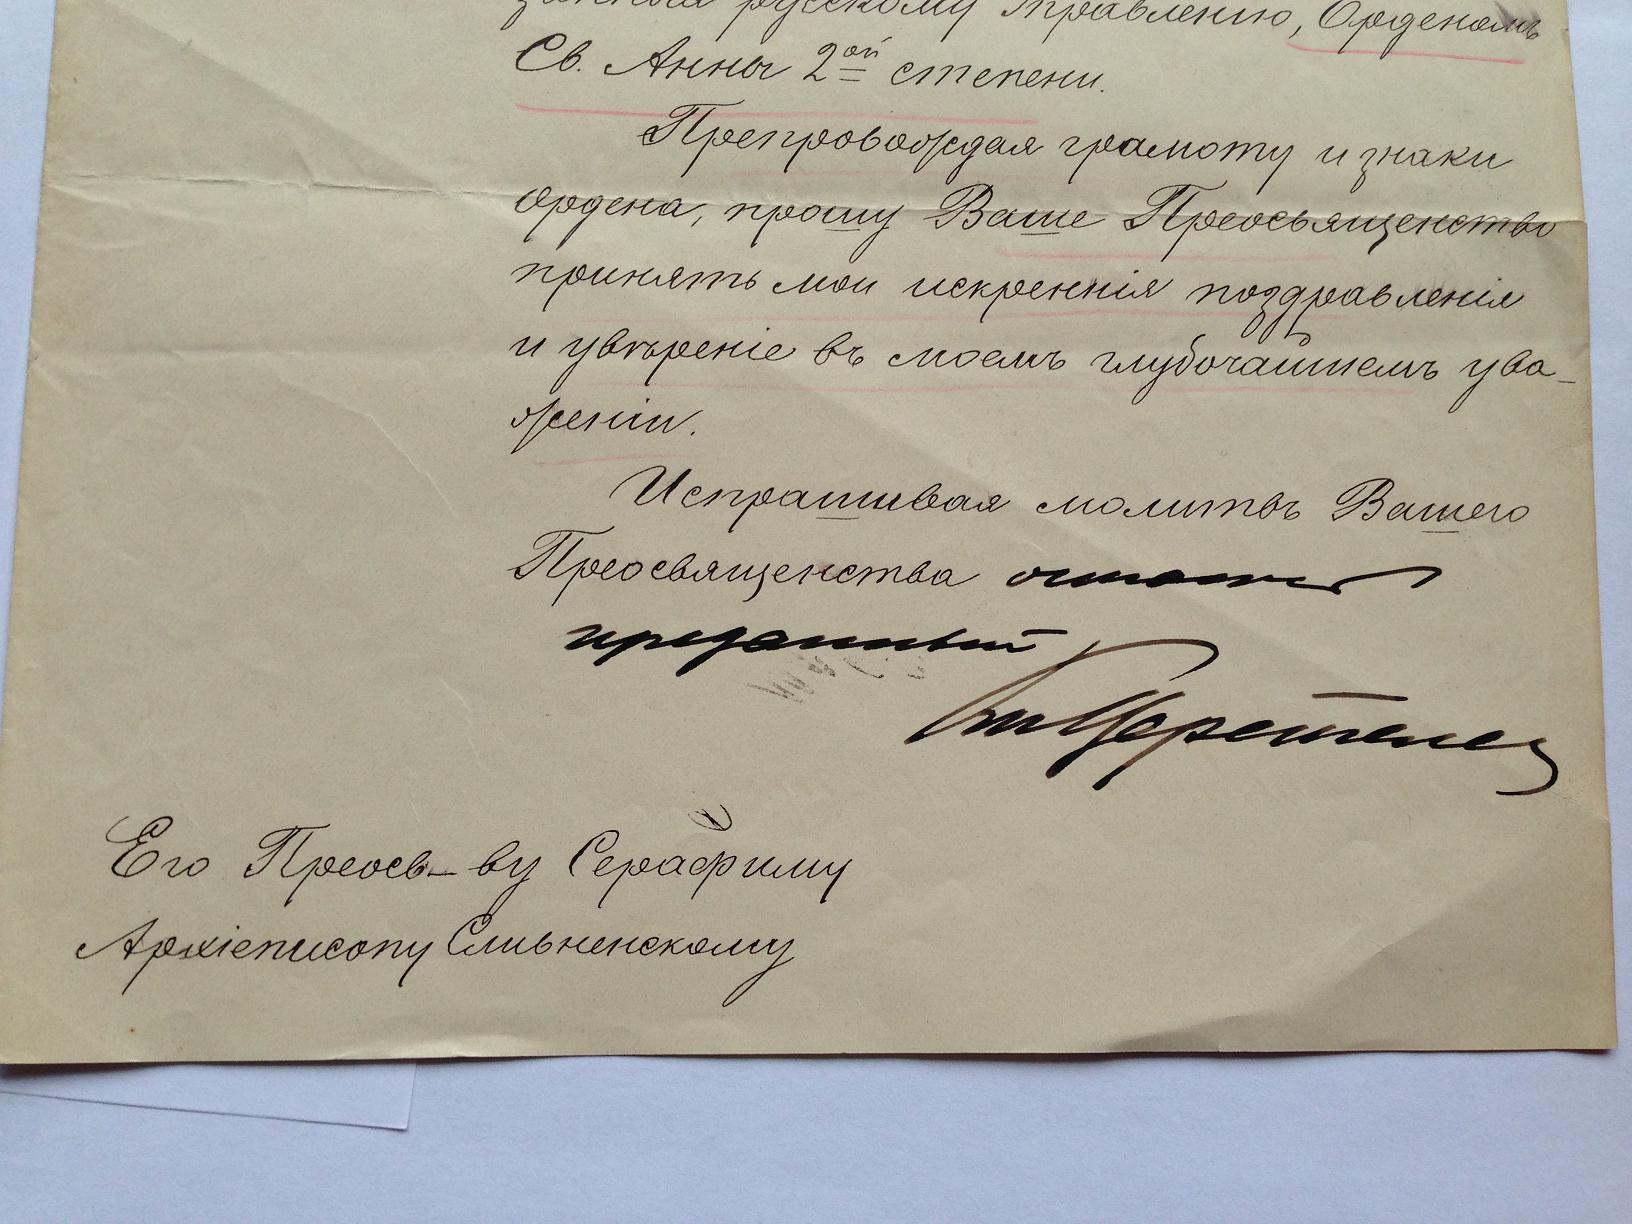 занныя русскому Управленію, Орденомъ
Св. Анны 2ой степени.
Препровождая грамоту и знаки
ордена, прошу Ваше Преосвященство
принять мои искреннія поздравленія
и увѣреніе въ моемъ глубочайшемъ ува-
женіи.
Испрашивая молитвъ Вашего
Преосвященства остаюсь
преданный
Кн Церетелев
Его Преосв-ву Серафиму
Архіепископу Сливненскому